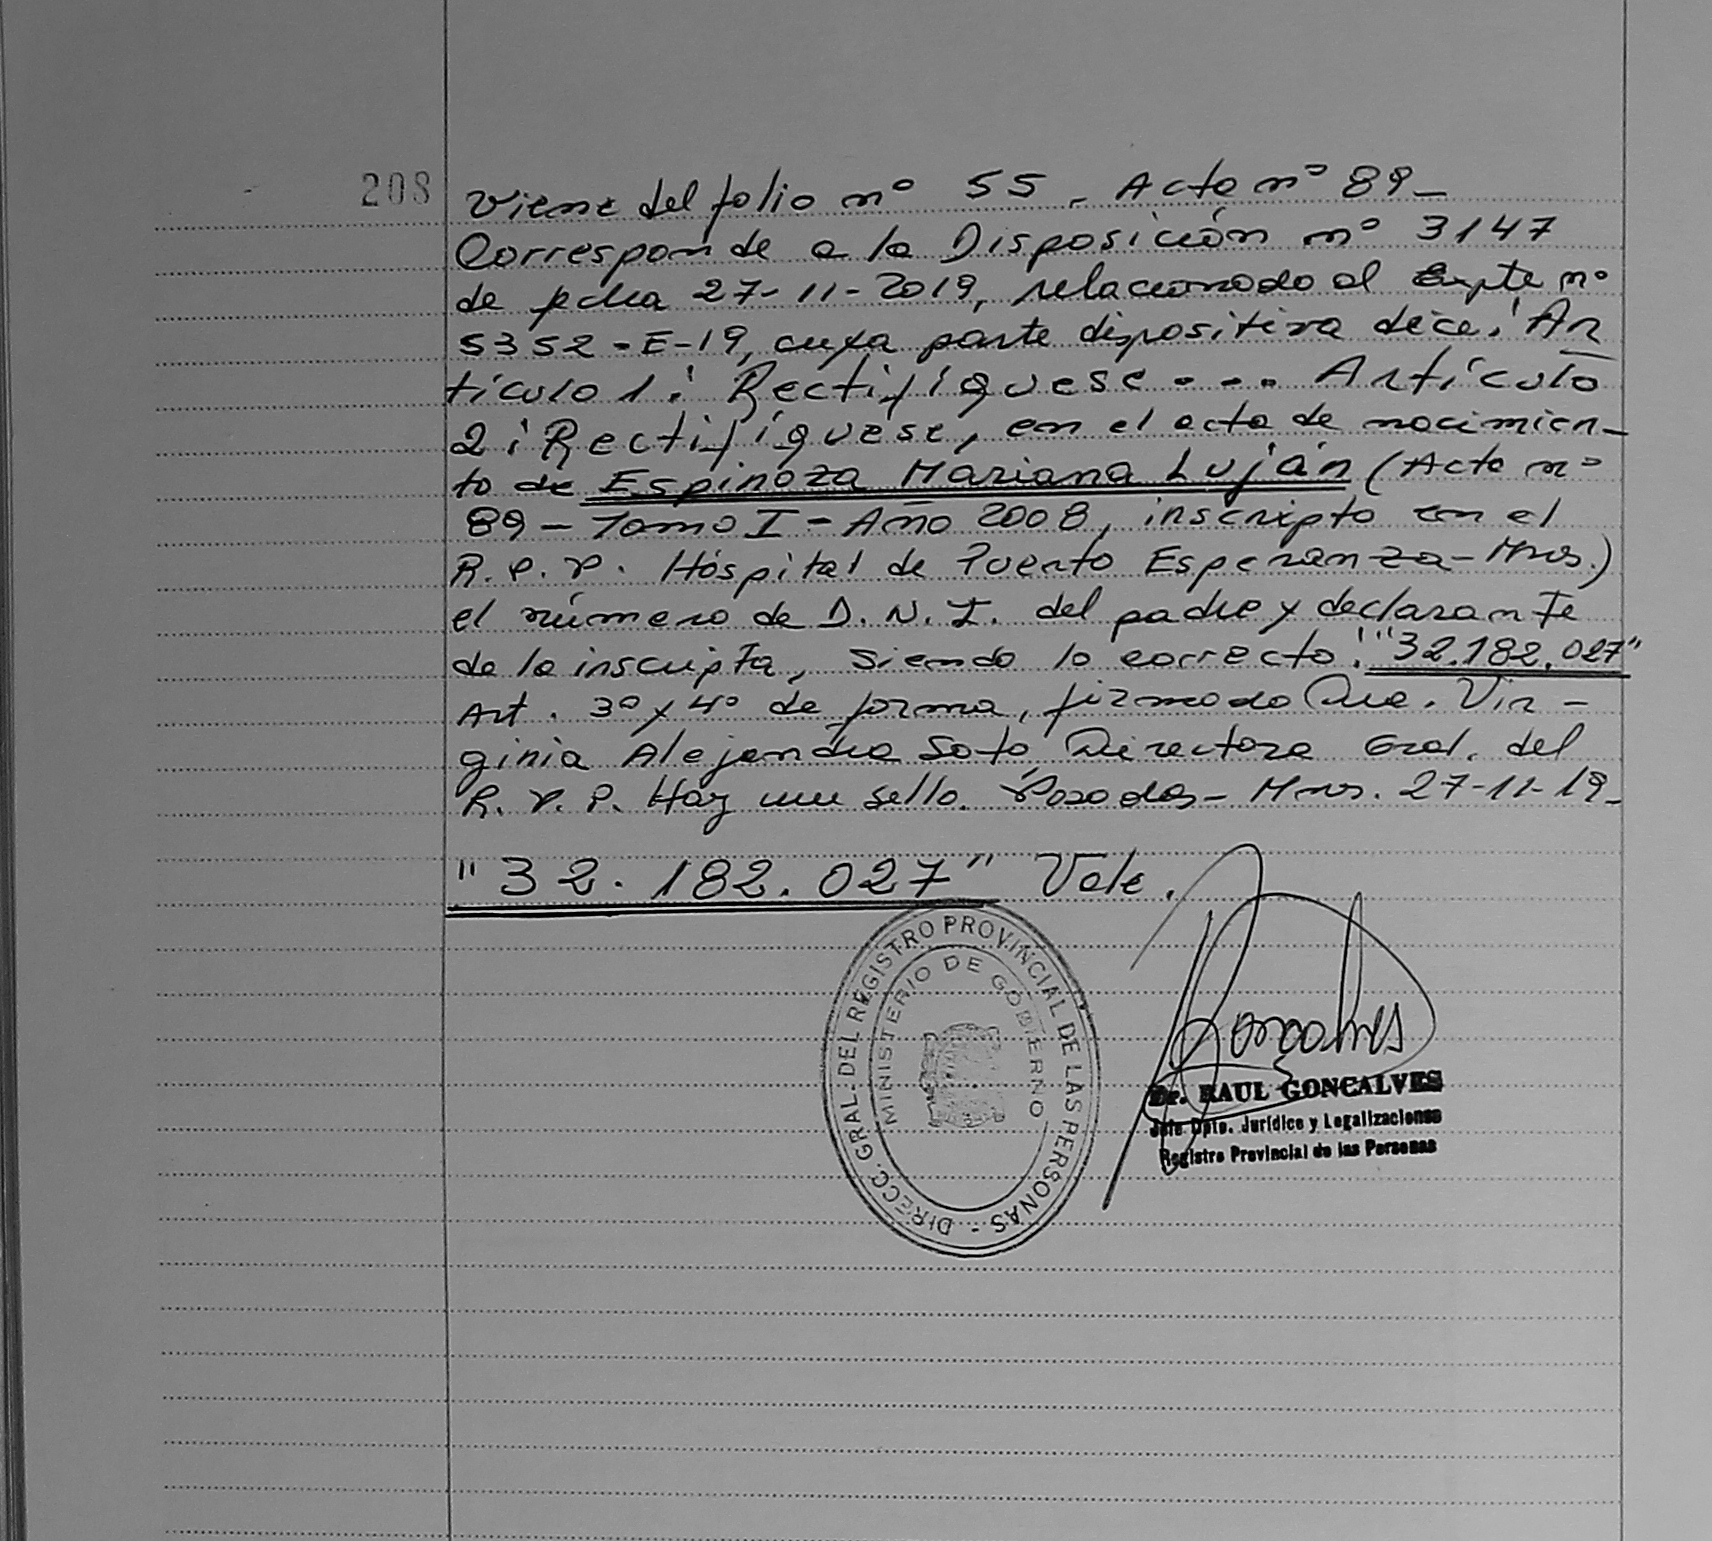 208
Viene del folio nº 55. Acta nº 89-
Corresponde a la Disposición nº 3147
de fecha 27-11-2019, relacionado al Expte nº
5352-E-19, cuya parte dispositiva dice: Ar
tículo 1: Rectifíquese... Artículo
2: Rectifíquese, en el acta de nacimien-
to de Espinoza Mariana Luján (Acta nº
89-Tomo I-Año 2008, inscripta en el
R.P.P. Hospital de Puerto Esperanza-Mnes.)
el número de D.N.I. del padre y declarante
de la inscripta, siendo lo correcto: "32.182.027"
Art. 3º y 4º de forma, firmado Dra. Vir-
ginia Alejandra Soto Directora Gral. del
R.P.P. Hay un sello. Posadas-Mnes. 27-11-19-
"32.182.027" Vale.
DIRECC. GRAL. DEL REGISTRO PROVINCIAL DE LAS PERSONAS -
MINISTERIO DE GOBIERNO
Goncalves
Dr. RAUL GONCALVES
Jefe Dpto. Jurídico y Legalizaciones
Registro Provincial de las Personas